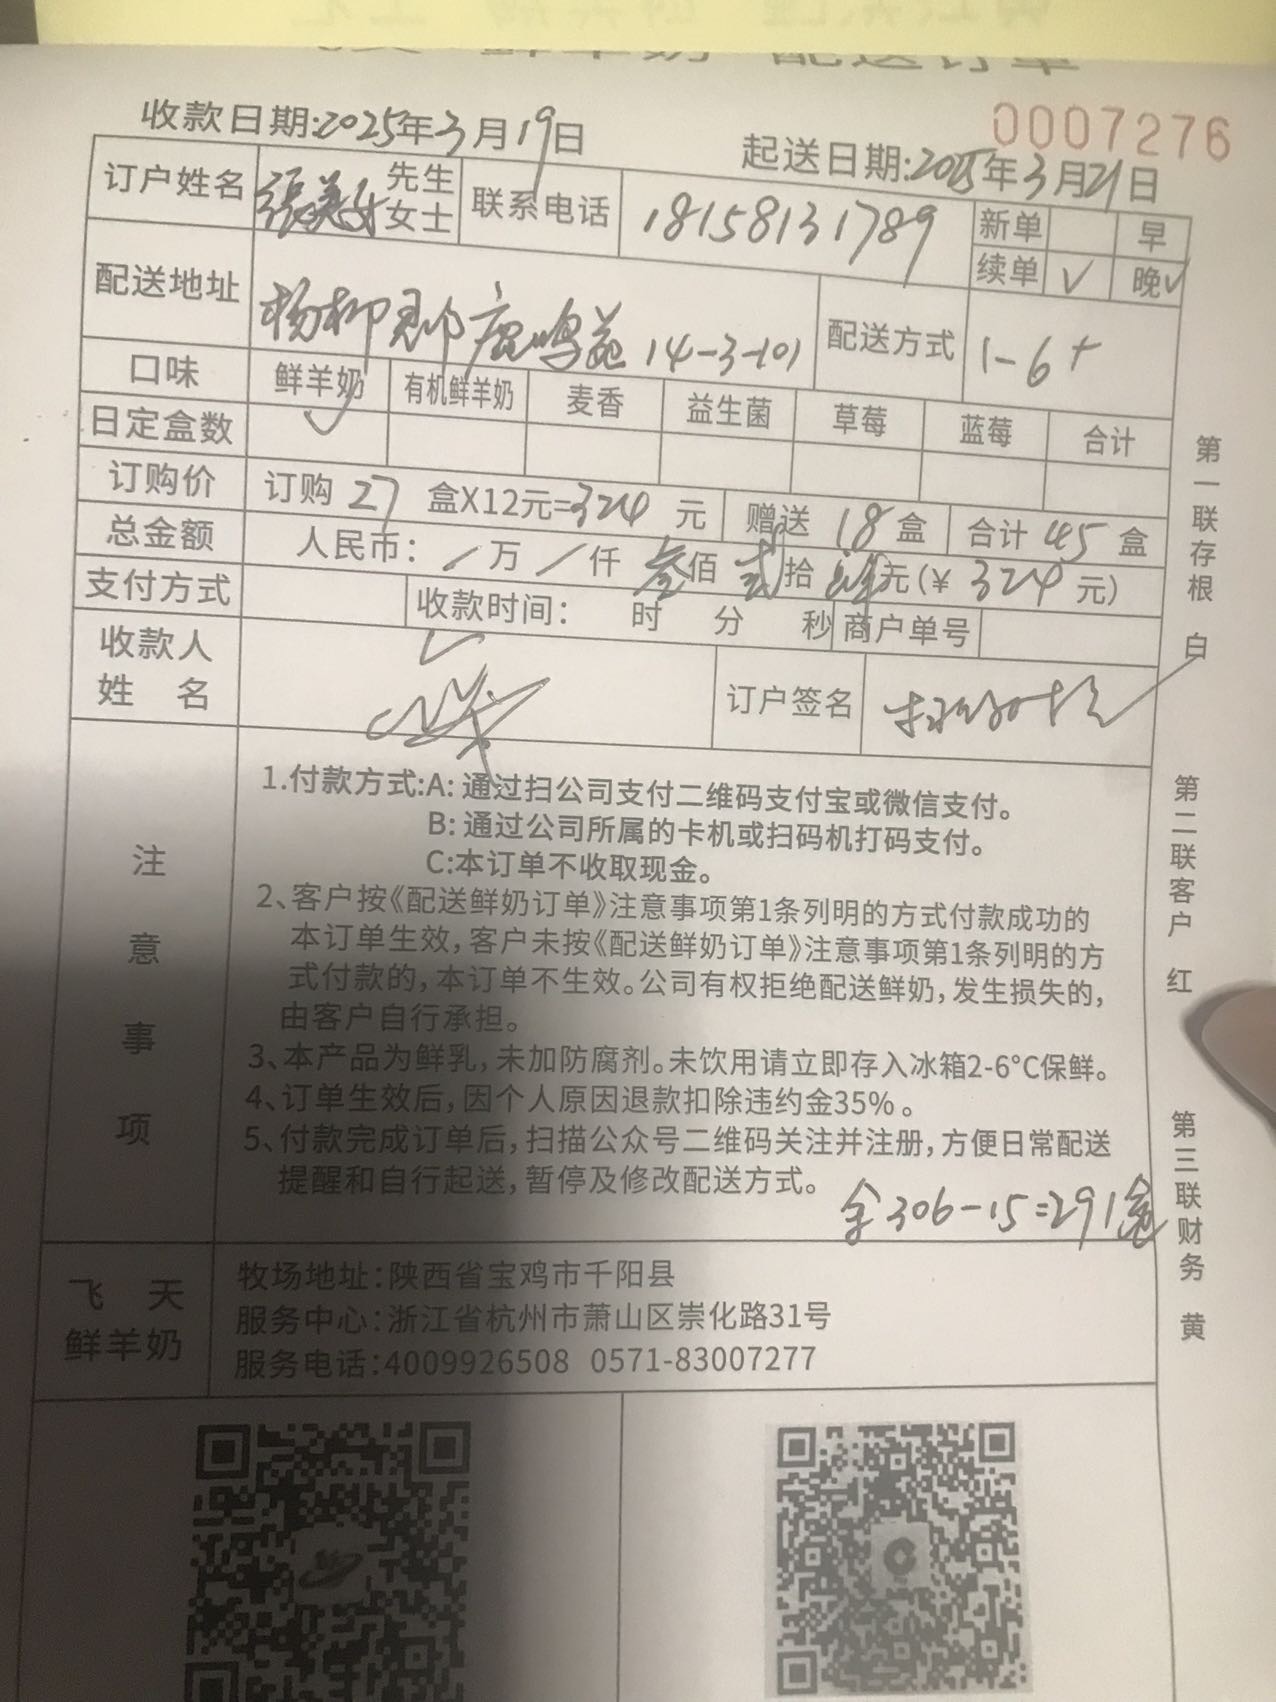 鲜羊奶 配送订单
0007276
收款日期:2025年3月19日
起送日期:2025年3月21日
订户姓名 張美女 先生 女士 联系电话 18158131789 新单 早
续单 ✓ 晚✓
配送地址 杨柳郡鹿鸣苑14-3-101 配送方式 1-6+
口味 鲜羊奶 有机鲜羊奶 麦香 益生菌 草莓 蓝莓 合计
日定盒数 ✓
订购价 订购 27 盒X12元=324 元 赠送 18 盒 合计 45 盒
总金额 人民币: / 万 / 仟 叁佰 贰拾 肆元(¥ 324 元)
支付方式 收款时间: 时 分 秒 商户单号
收款人
姓 名
订户签名
注意事项
1.付款方式:A: 通过扫公司支付二维码支付宝或微信支付。
B: 通过公司所属的卡机或扫码机打码支付。
C:本订单不收取现金。
2、客户按《配送鲜奶订单》注意事项第1条列明的方式付款成功的
本订单生效,客户未按《配送鲜奶订单》注意事项第1条列明的方
式付款的,本订单不生效。公司有权拒绝配送鲜奶,发生损失的,
由客户自行承担。
3、本产品为鲜乳,未加防腐剂。未饮用请立即存入冰箱2-6°C保鲜。
4、订单生效后,因个人原因退款扣除违约金35%。
5、付款完成订单后,扫描公众号二维码关注并注册,方便日常配送
提醒和自行起送,暂停及修改配送方式。
余306-15=291盒
飞 天
鲜羊奶
牧场地址:陕西省宝鸡市千阳县
服务中心:浙江省杭州市萧山区崇化路31号
服务电话:4009926508 0571-83007277
第一联存根 白
第二联客户 红
第三联财务 黄